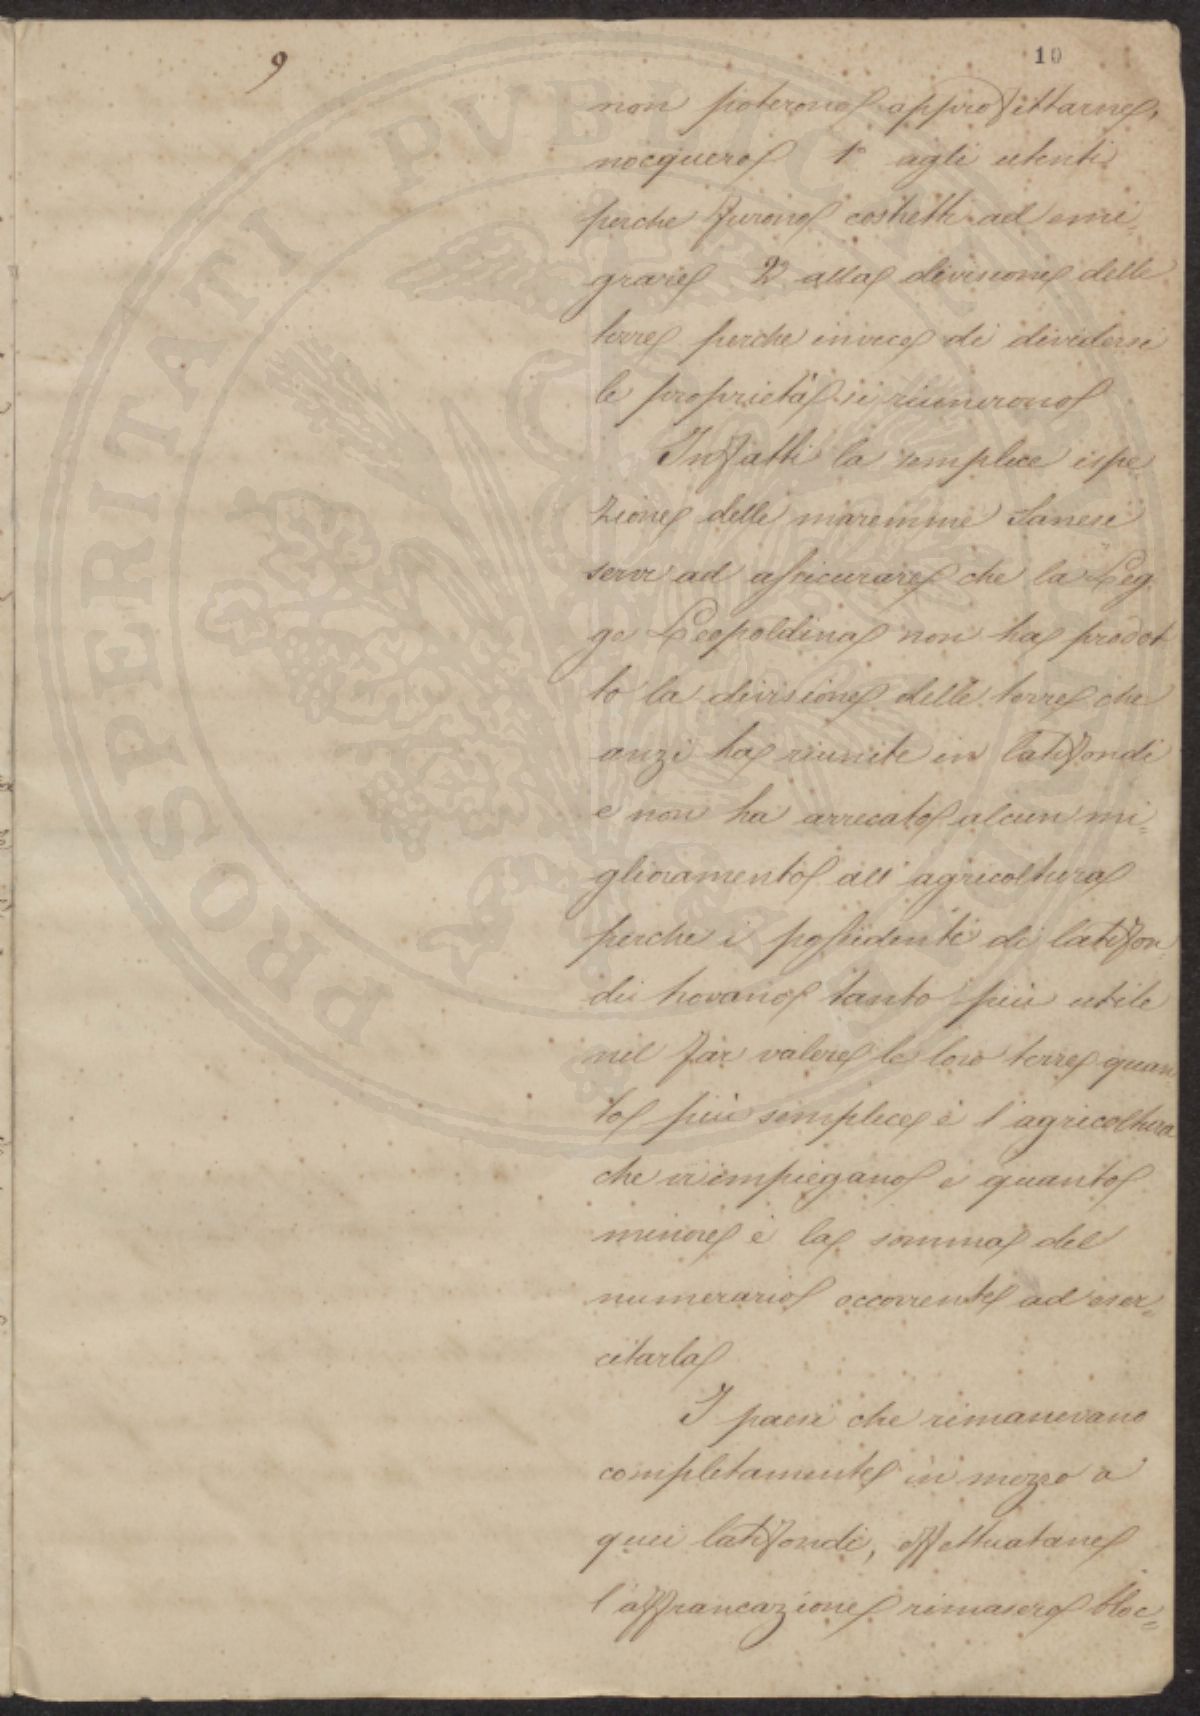 9
10
non poterono approfittarne,
nocquero 1° agli utenti
perche furono costretti ad emi=
grare 2° alla divisione delle
terre perche invece di dividersi
le proprietà si riunirono
Infatti la semplice ispe
zione delle maremme Sanesi
servi ad assicurare che la Leg
ge Leopoldina non ha prodot
to la divisione delle terre che
anzi ha riunite in latifondi
e non ha arrecato alcun mi=
glioramento all'agricoltura
perche i possidenti di latifon
di trovano tanto più utile
nel far valere le loro terre quan
to più semplice è l'agricoltura
che vi impiegano e quanto
minore è la somma del
numerario occorrente ad eser=
citarla
I paesi che rimanevano
completamente in mezzo a
quei latifondi, effettuatane
l'affrancazione rimasero bloc=
PROSPERITATI PVBLICAE